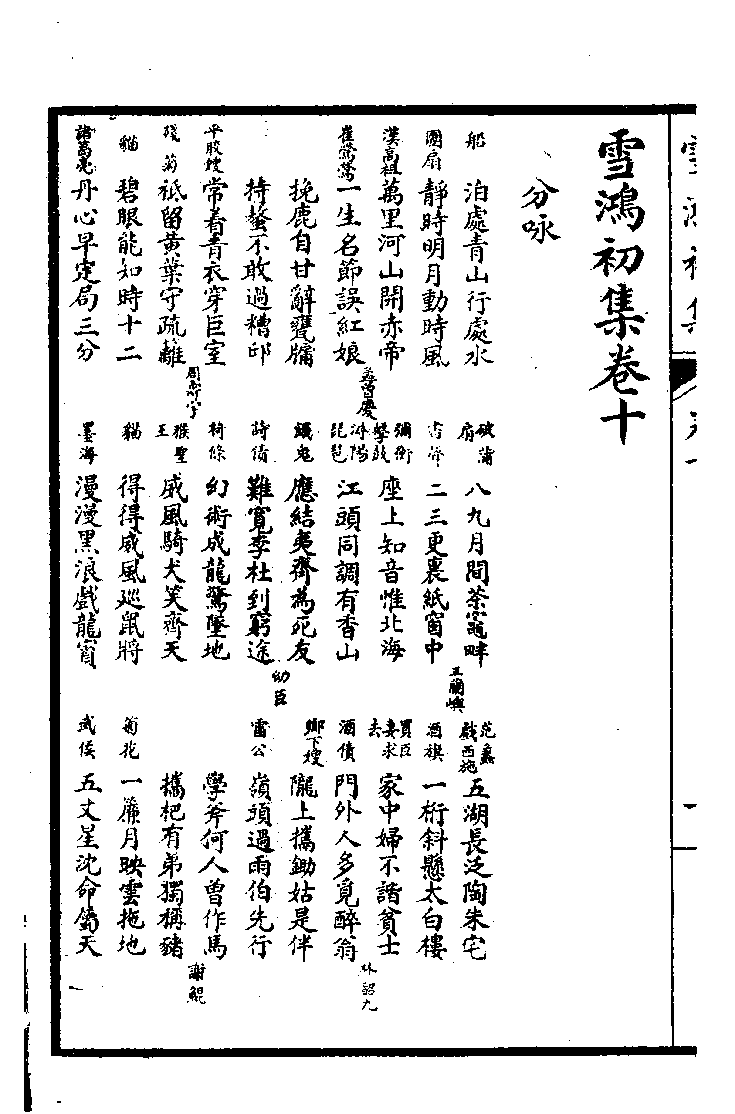 雪鴻初集卷十
分咏
船 泊處青山行處水
破蒲扇 八九月間茶竈畔
范蠡戲西施 五湖長泛陶朱宅
團扇 靜時明月動時風
二三更裏紙窗中 王蘭嶼
酒旗 一桁斜懸太白樓
漢高祖 萬里河山開赤帝
禰衡擊鼓 座上知音惟北海
買臣妻求去 家中婦不諧貧士
崔鶯鶯 一生名節誤紅娘 曾慶
潯陽琵琶 江頭同調有香山
酒債 門外人多覓醉翁 林韶九
挽鹿自甘辭甕牖
餓鬼 應結夷齊為死友
鄉下嫂 隴上攜鋤姑是伴
持螯不敢過糟邱
詩債 難寬李杜到窮途 幼臣
雷公 嶺頭過雨伯先行
平脚嫂 常着青衣穿巨室
幻術成龍驚墜地
學斧何人曾作馬
殘菊 祗留黃葉守疏籬
猴聖王 威風騎犬笑齊天
攜杷有弟獨稱豬 謝鯤
貓 碧眼能知時十二
貓 得得威風巡鼠將
菊花 一簾月映雲拖地
諸葛亮 丹心早定局三分
墨海 漫漫黑浪戲龍賓
武侯 五丈星沈命屬天
雪鴻初集